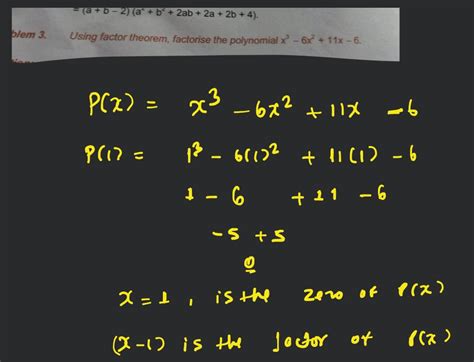 = (a + b – 2) (a² + b² + 2ab + 2a + 2b + 4).
blem 3. Using factor theorem, factorise the polynomial x³ – 6x² + 11x – 6.
P(x) = x³ – 6x² + 11x – 6
P(1) = 1³ – 6(1)² + 11(1) – 6
1 – 6 + 11 – 6
–5 + 5
0
x = 1, is the zero of P(x)
(x–1) is the factor of P(x)